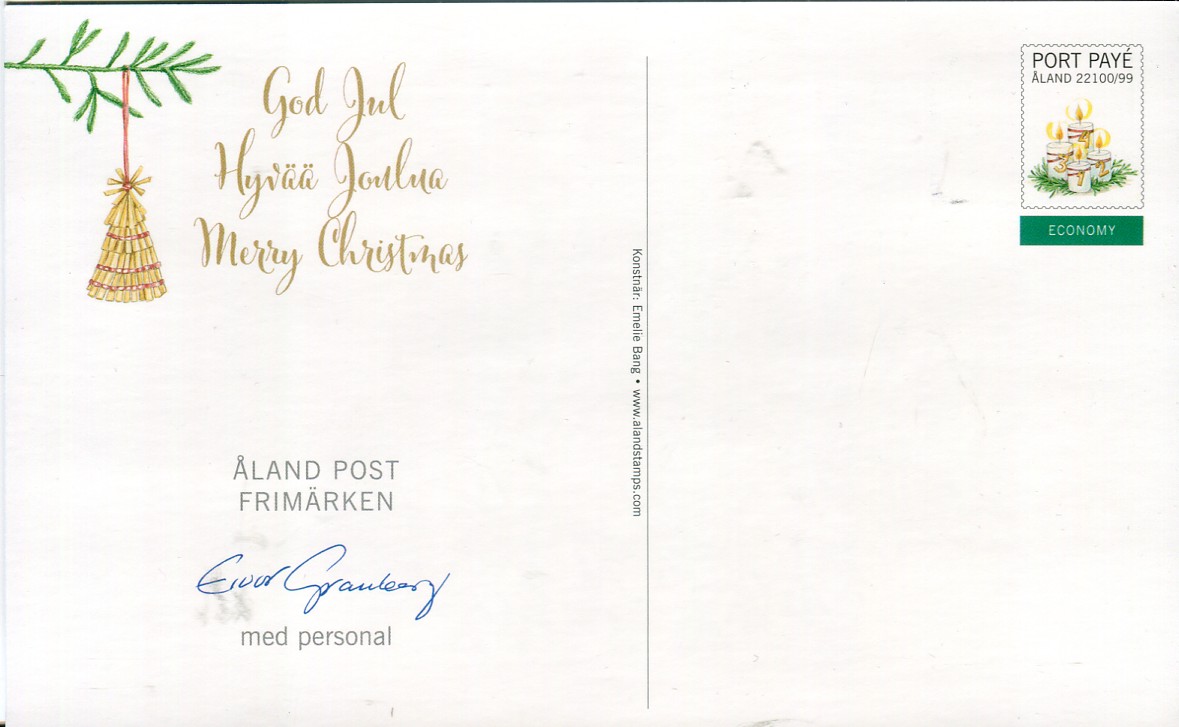 God Jul
Hyvää Joulua
Merry Christmas
ÅLAND POST
FRIMÄRKEN
Eivor Granberg
med personal
Konstnär: Emelie Bang • www.alandstamps.com
PORT PAYÉ
ÅLAND 22100/99
4
3
1
2
ECONOMY